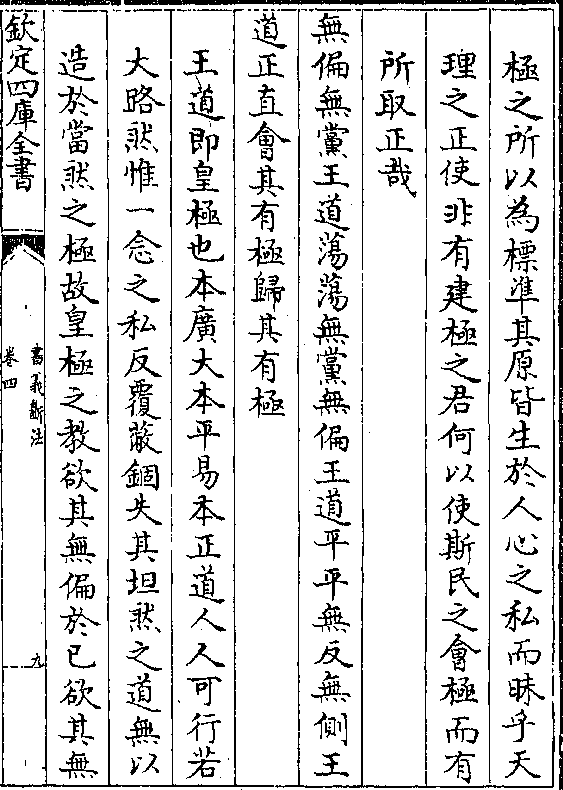 極之所以為標準其原皆生於人心之私而昧乎天
理之正使非有建極之君何以使斯民之會極而有
所取正哉
無偏無黨王道蕩蕩無黨無偏王道平平無反無側王
道正直會其有極歸其有極
王道即皇極也本廣大本平易本正道人人可行若
大路然惟一念之私反覆蔽錮失其坦然之道無以
造於當然之極故皇極之教欲其無偏於已欲其無
欽定四庫全書
書義斷法
卷四
九